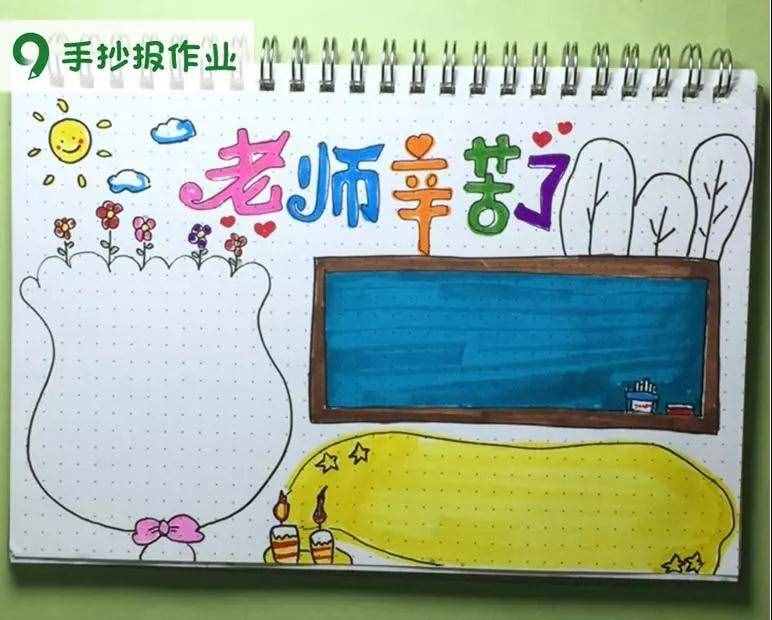 手抄报作业
老师辛苦了